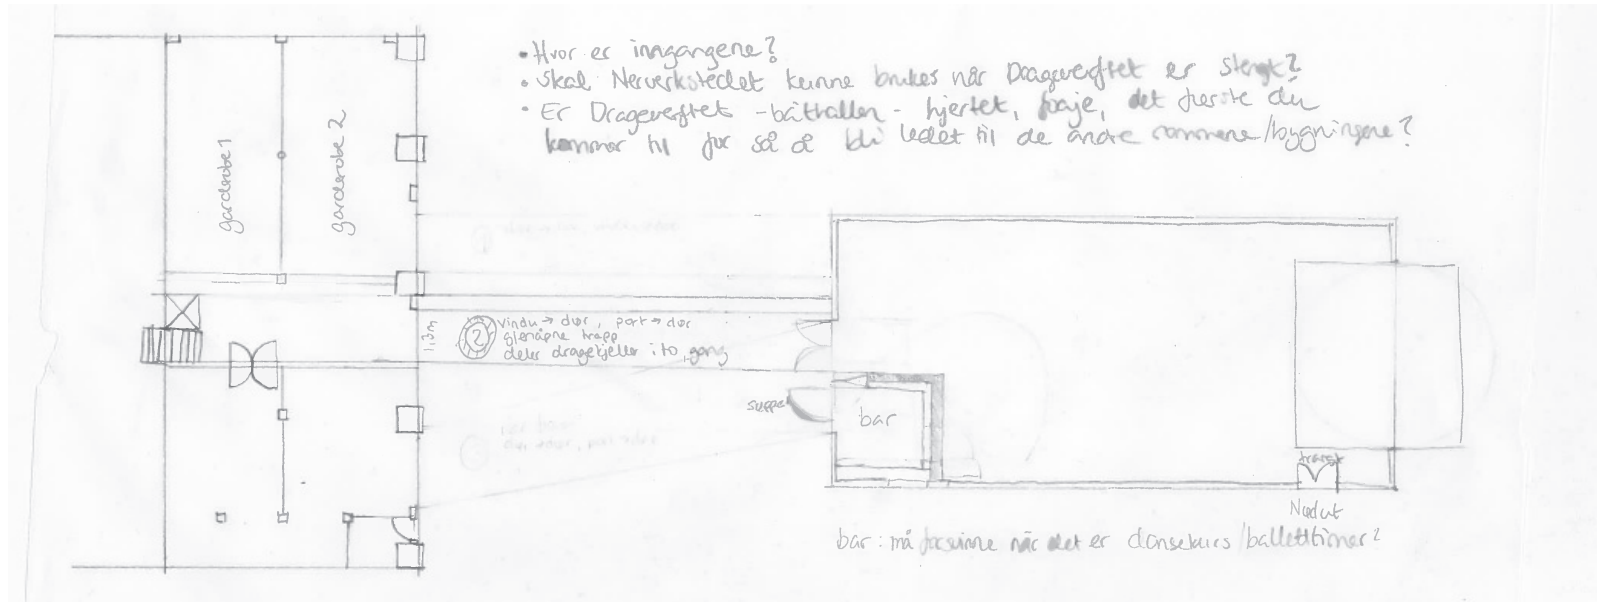 • Hvor er inngangene?
• Skal Nerverkstedet kunne brukes når Drageverftet er stengt?
• Er Drageverftet - båthallen - hjertet, foaje, det første du
kommer til for så å bli ledet til de andre rommene/bygningene?
garderobe 1
garderobe 2
1,3m
2
vindu → dør, port → dør
gjenåpne trapp
deler dragekjeller i to, gang
suppe
bar
trangt
Nødut
bar: må forsvinne når det er dansekurs/ballettimer?